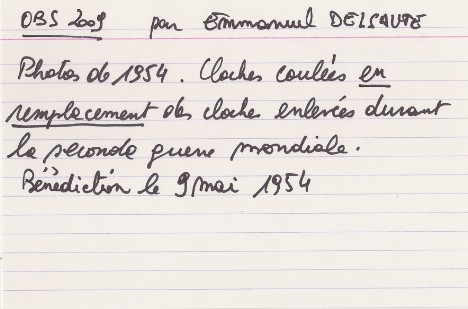 OBS 2009 par Emmanuel DELSAUTE
Photos de 1954. Cloches coulées en
remplacement des cloches enlevées durant
la seconde guerre mondiale.
Bénédiction le 9 mai 1954